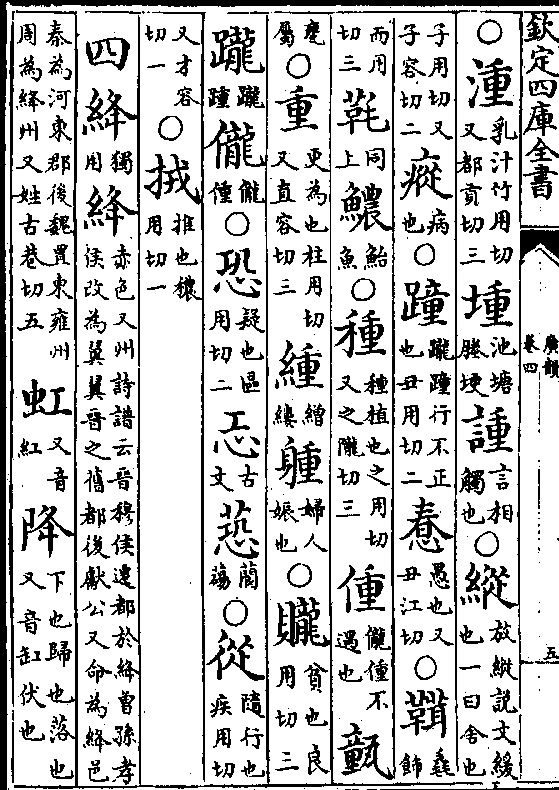 欽定四庫全書
廣韻
卷四
五
○湩乳汁竹用切又都貢切三 堹池塘塍埂 諥言相觸也○縱放縱説文緩也一曰舍也
子用切又子容切二 瘲病也○蹱躘蹱行不正也丑用切二 惷愚也又丑江切○鞲毳飾
而用切三 㲨上同 鱫鮐魚○種種植也之用切又之隴切三 偅儱偅不遇也 
甕屬○重更為也柱用切又直容切三 緟繒縷 䐯婦人娠也○贚貧也良用切三
躘躘蹱 儱儱偅○恐疑也區用切二 㤟古文 蒠藹蕩○從隨行也疾用切
又才容切一○拭推也穠用切一
四絳獨用 絳赤色又州詩譜云晉穆侯遷都於絳曽孫孝侯改為翼翼晉之舊都後獻公又命為絳邑
秦為河東郡後魏置東雍州周為絳州又姓古巷切五 虹又音紅 降下也歸也落也又音缸伏也